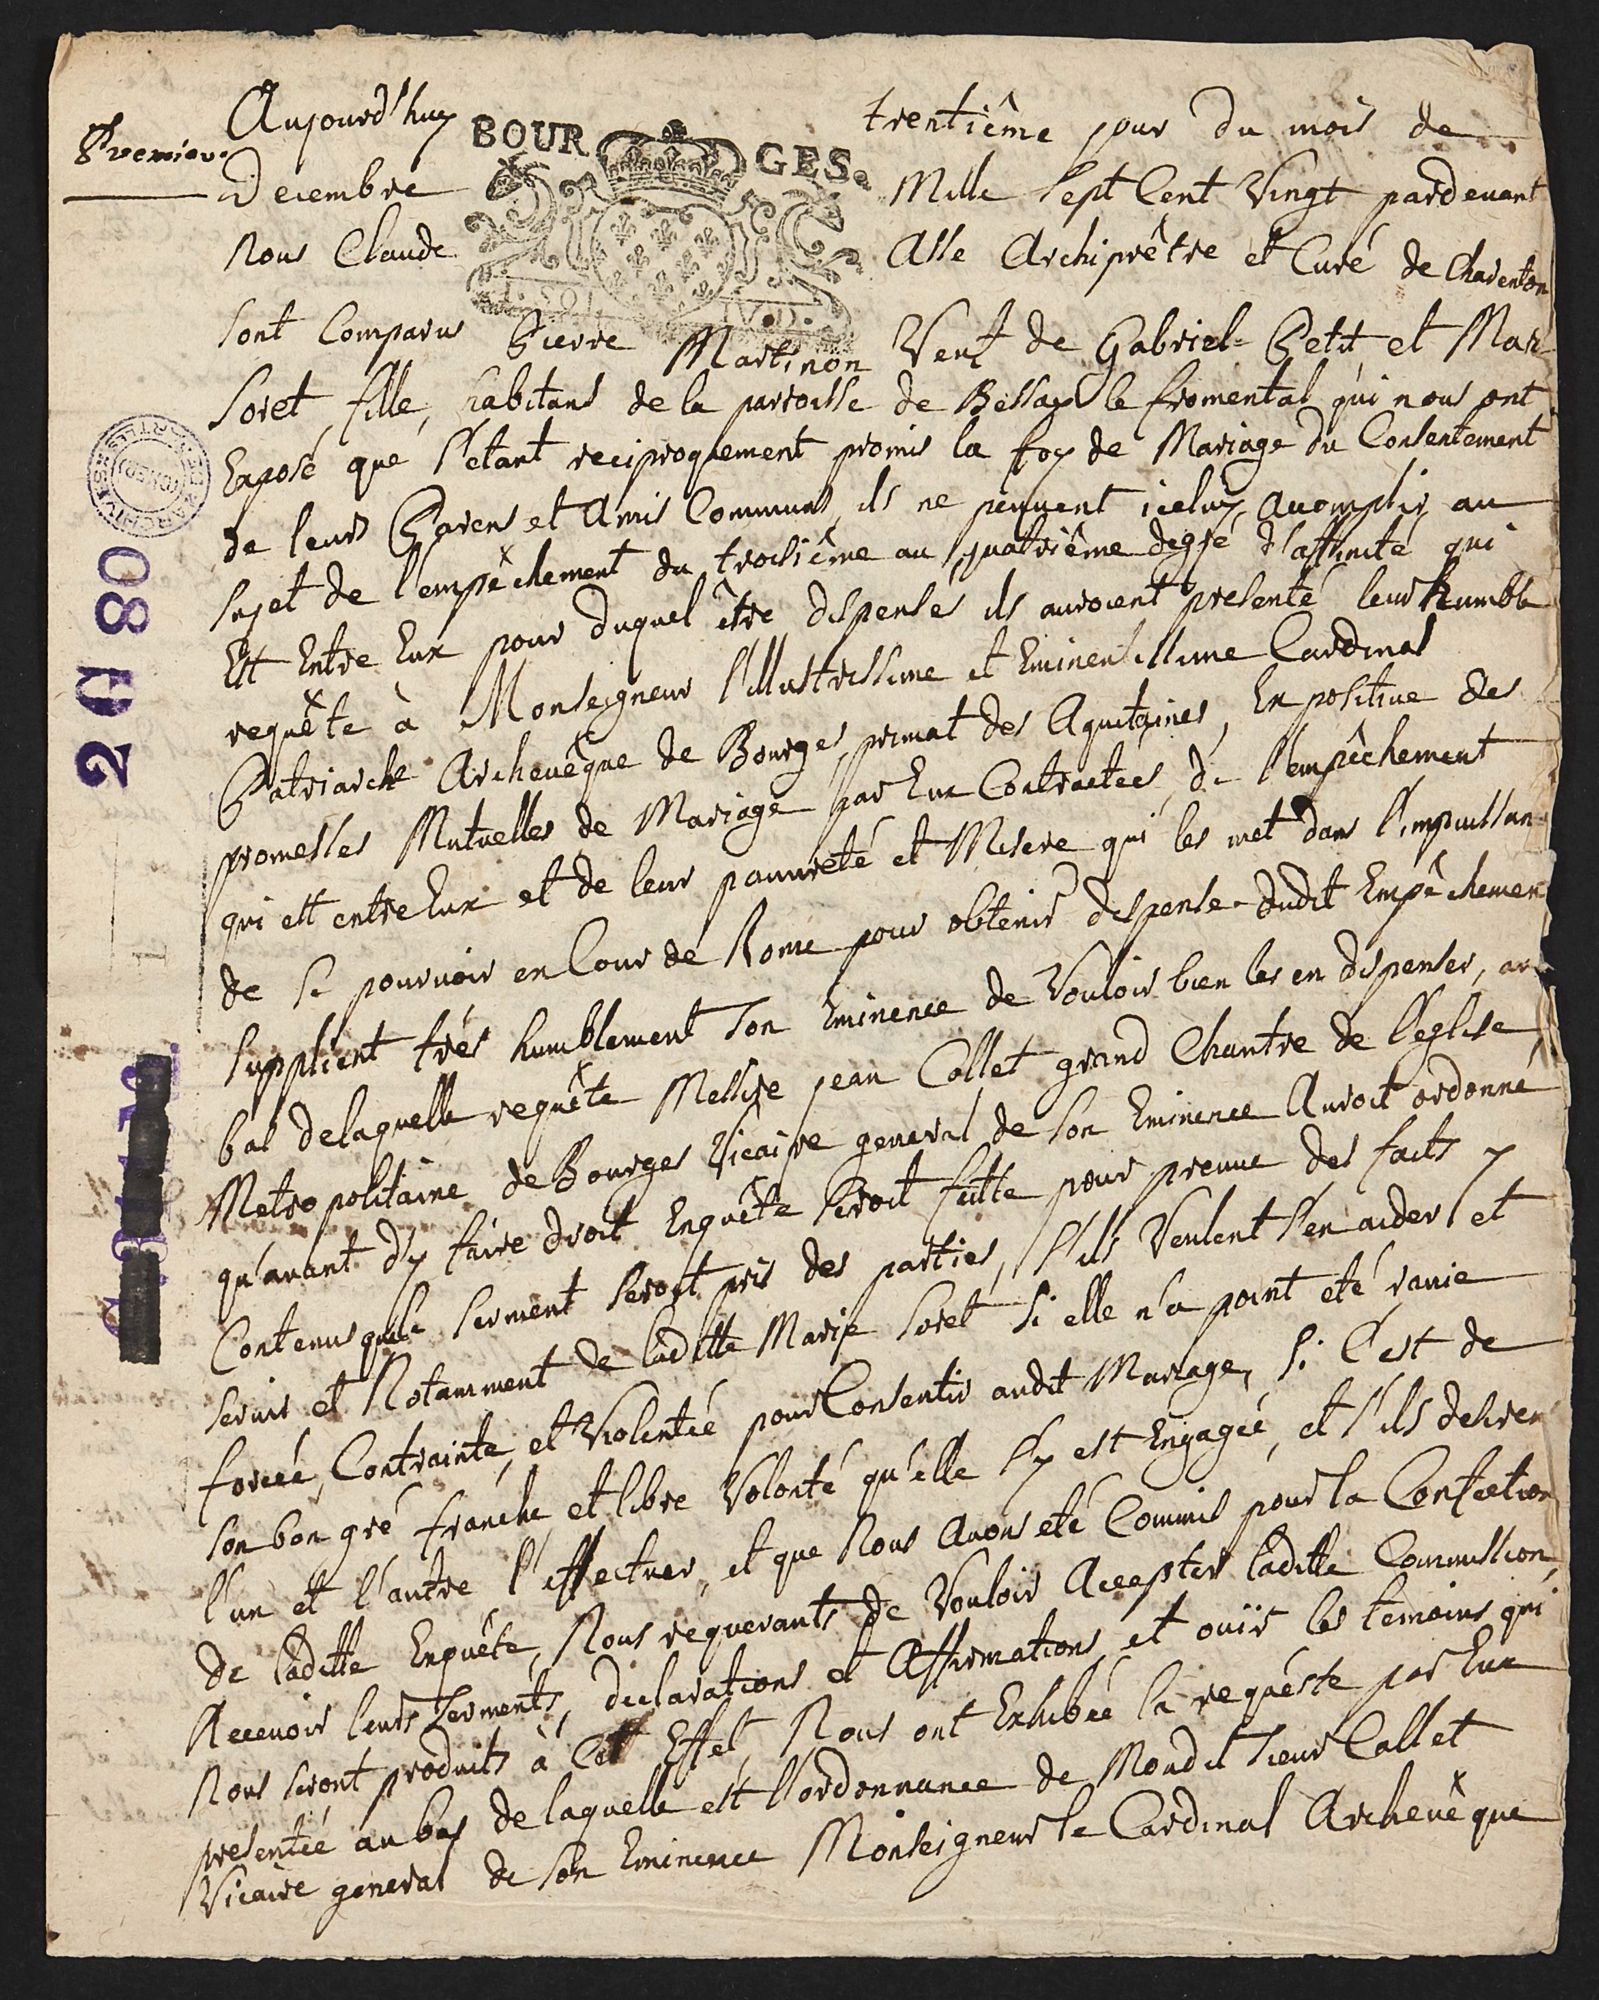 Premiere
Aujourd'huy trentiême jour du mois de
BOUR GES.
Decembre Mille Sept Cent Vingt pardevant
Nous Claude Asse Archiprêtre et Curé de Charenton
Sont Comparus Pierre Martinon Veuf de Gabriel Petit et Mar
Soret, fille, habitans de la parroisse de Bessay le fromental qui nous ont
Exposé que s'etant reciproquement promis la foy de Mariage du Consentement
de leurs Parens et Amis Communs, ils ne peuvent iceluy accomplir au
sujet de l'empêchement du troisiême au quatriême degré d'affinité qui
Est Entre Eux pour duquel être dispensés ils auroient presenté leur humble
requête à Monseigneur l'illustrissime et Eminentissime Cardinal
Patriarche Archevêque de Bourges, primat des Aquitaines, Expositive des
promesses Mutuelles de Mariage par Eux Contractées, de l'empêchement
qui est entre Eux et de leur pauvreté et Misere qui les met dans l'impuissan
de se pourvoir en Cour de Rome pour obtenir dispense dudit Empêchemen
Supplient trés humblement Son Eminence de Vouloir bien les en dispenser, au
bas delaquelle requête Messire jean Collet grand Chantre de l'eglise
Metropolitaine de Bourges Vicaire general de Son Eminence Auroit ordonné
qu'avant d'y faire droit Enquête Seroit faitte pour preuve des faits y
Contenus que le serment Seroit pris des parties, s'ils Veulent s'en aider et
servir et Notamment de laditte Marie Soret si elle n'a point eté ravie
forcée, Contrainte, et Violentée pour Consentir audit Mariage, si C'est de
son bon gré franche et libre Volonté qu'elle s'y est Engagée, et s'ils desiren
l'un et l'autre l'effectuer, et que Nous Avons eté Commis pour la Confection
de laditte Enquête, Nous requerants de Vouloir Accepter laditte Commission,
Recevoir leurs serments, declarations et Affirmations, et ouïr les temoins qui
Nous seront produits à Cet Effet, Nous ont Exhibée la requéste par Eux
presentée au bas de laquelle est l'ordonnance de Mondit sieur Collet
Vicaire general de Son Eminence Monseigneur le Cardinal Archevêque
2 G 80